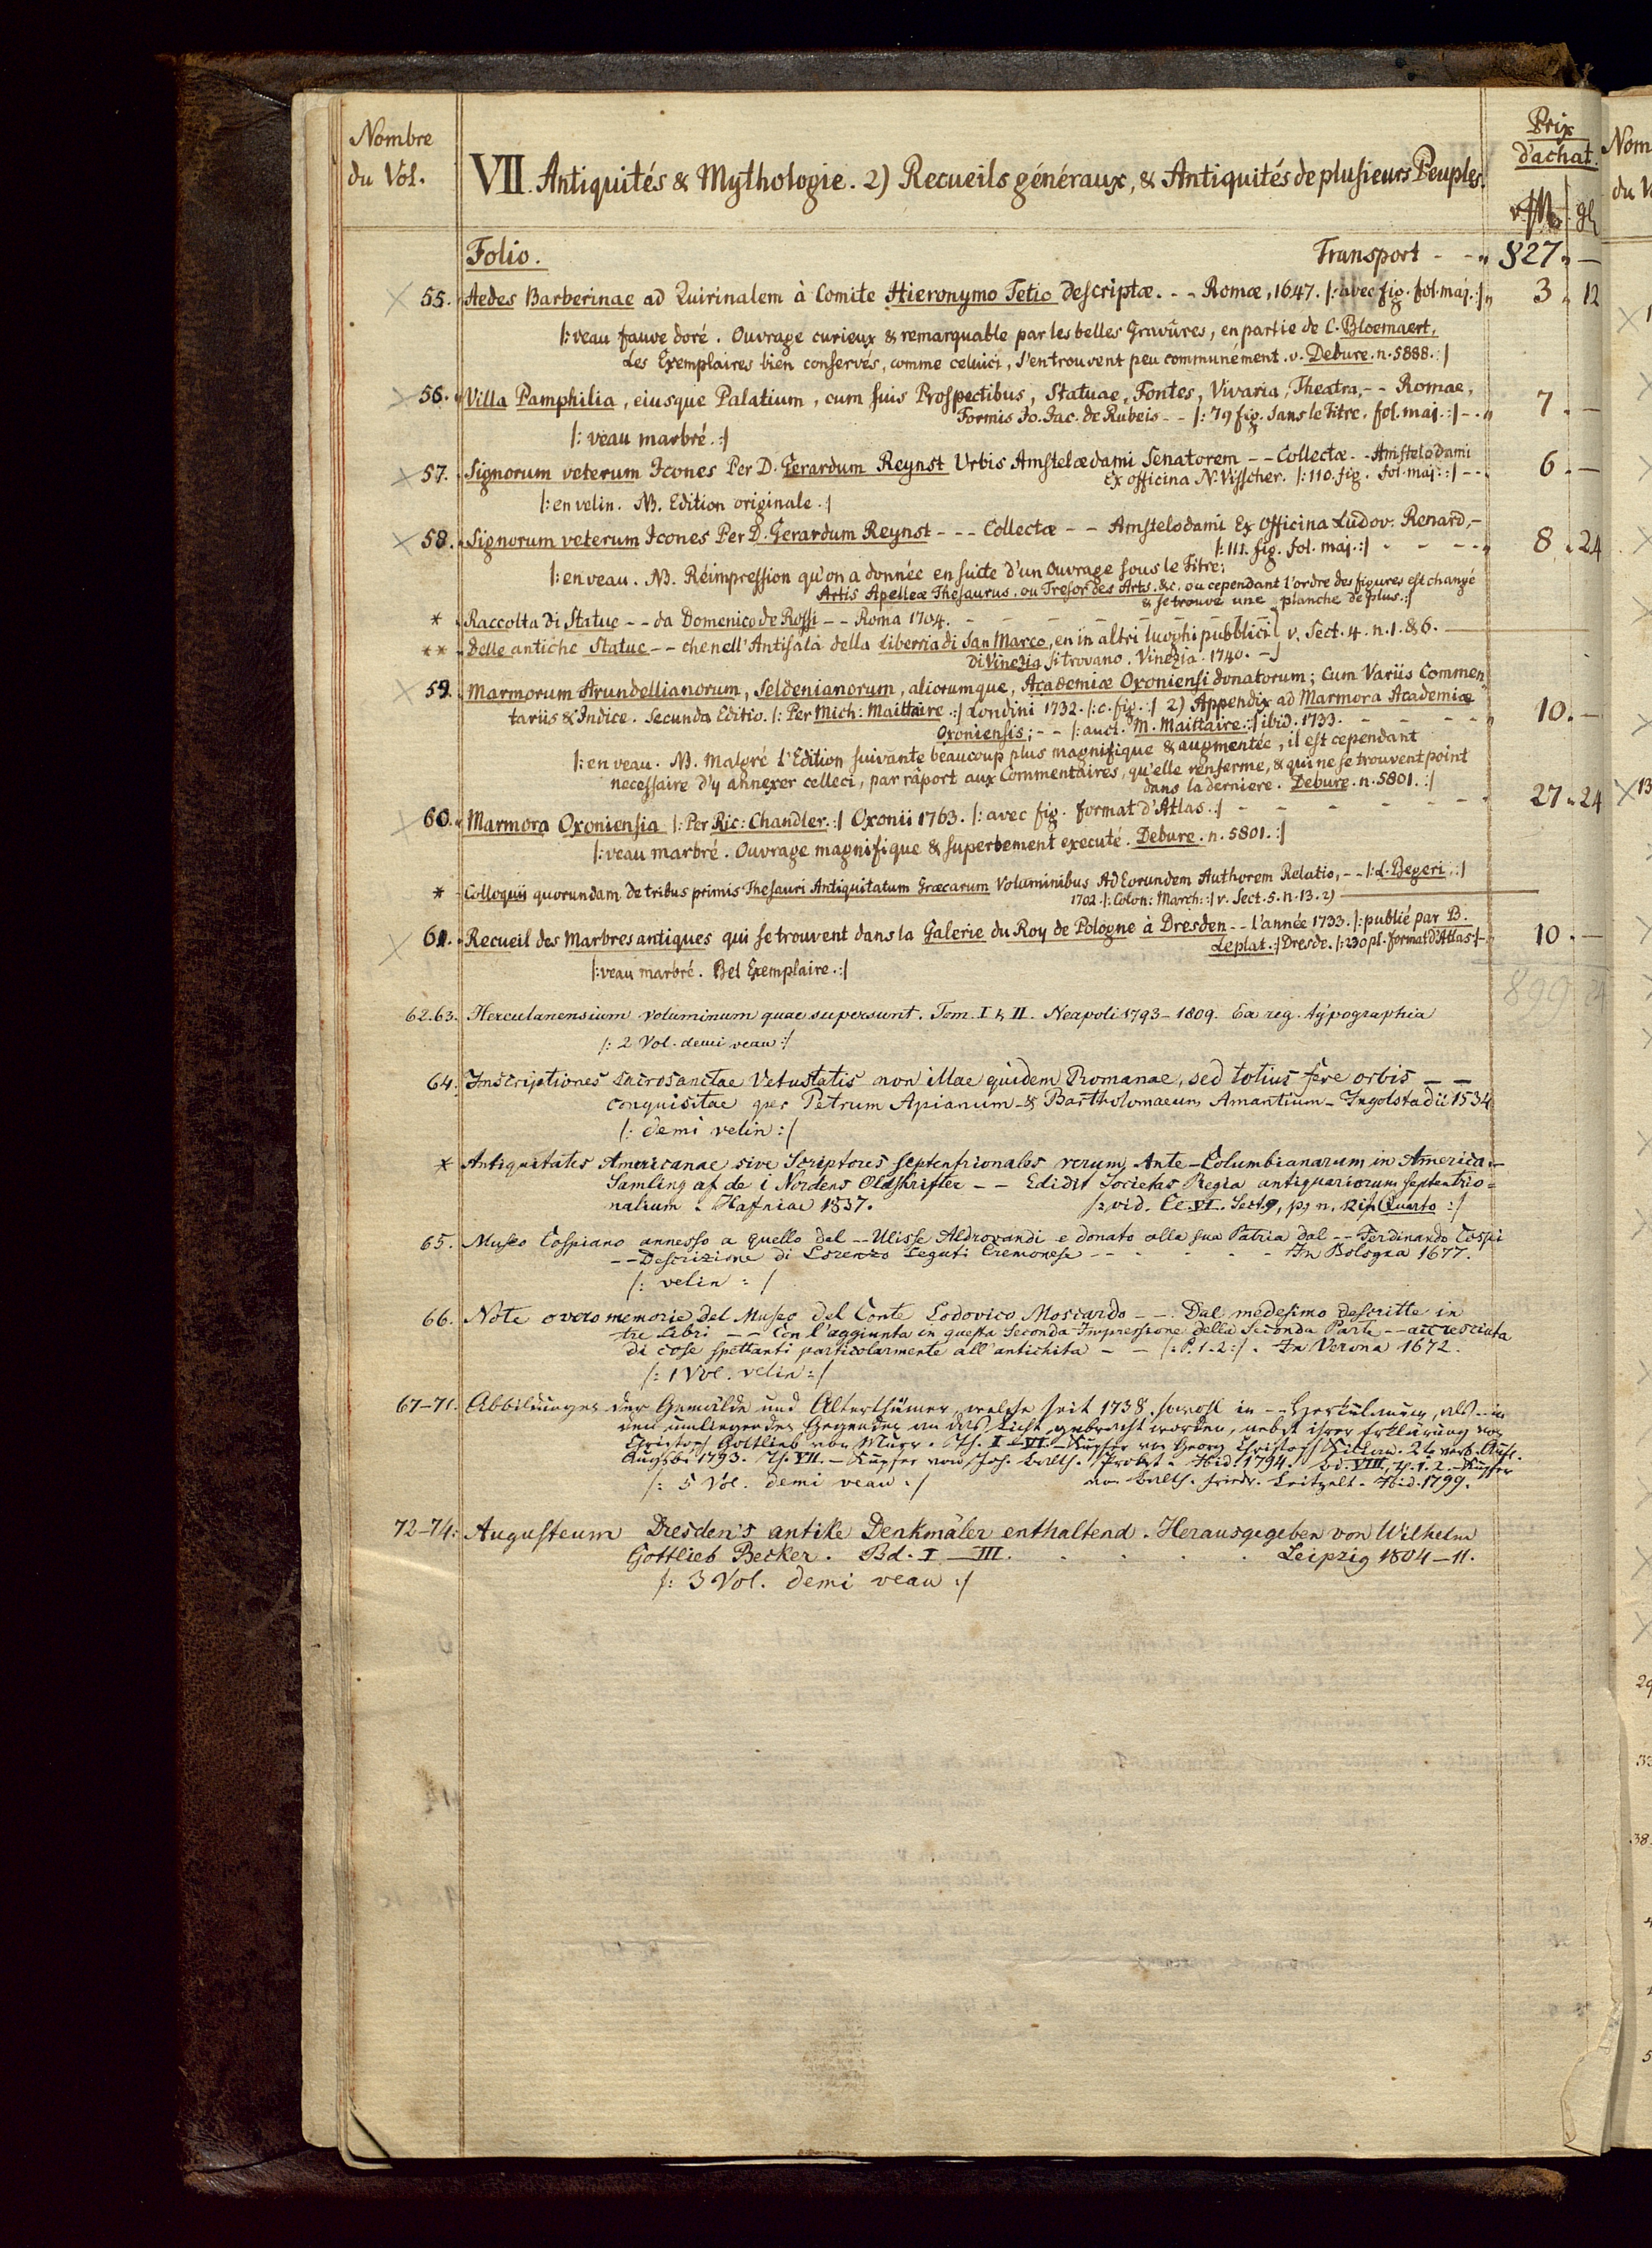 Nombre
du Vol.
VII. Antiquités & Mythologie. 2) Recueils généraux, & Antiquités de plusieurs Peuples.
Prix
d'achat.
Folio. Transport - - „ 827 „ —
55. Aedes Barberinae ad Quirinalem à Comite Hieronymo Tetio descriptæ. - - Romæ, 1647. |: avec fig. fol. maj. :| „ 3 „ 12
|: veau fauve doré. Ouvrage curieux & remarquable par les belles Gravûres, en partie de C. Bloemaert.
Les Exemplaires bien conservés, comme celuici, s'en trouvent peu communément. v. Debure. n. 5888. :|
56. Villa Pamphilia, eiusque Palatium, cum suis Prospectibus, Statuae, Fontes, Vivaria, Theatra, - - Romae,
Formis Jo. Jac. de Rubeis - - |: 79 fig. sans le Titre. fol. maj. :| - „ 7 . —
|: veau marbré. :|
57. Signorum veterum Icones Per D. Gerardum Reynst Urbis Amstelædami Senatorem - - Collectæ - - Amstelodami
Ex officina N. Visscher. |: 110. fig. fol. maj. :| - - 6 . —
|: en velin. NB. Edition originale. :|
58. Signorum veterum Icones Per D. Gerardum Reynst - - - Collectæ - - Amstelodami Ex Officina Ludov. Renard, -
|: 111. fig. fol. maj. :| - - - - „ 8 „ 24
|: en veau. NB. Réimpression qu'on a donnée en suite d'un Ouvrage sous le Titre:
Artis Apelleæ Thesaurus. ou Tresor des Arts. &c. ou cependant l'ordre des figures est changé
& se trouve une planche de plus. :|
* Raccolta di Statue - - da Domenico de Rossi - - Roma 1704. - - - - - -
** Delle antiche Statue - - che nell' Antisala della Libreria di San Marco, en in altri luoghi pubblici v. Sect. 4. n. 1. & 6.
di Vinezia si trovano. Vinezia. 1740. -
59. Marmorum Arundellianorum, Seldenianorum, aliorumque, Academiæ Oxoniensi donatorum; Cum Variis Commen
tariis & Indice. Secunda Editio. |: Per Mich: Maittaire :| Londini 1732. |: c. fig. :| 2) Appendix ad Marmora Academiæ
Oxoniensis; - - |: auct. M. Maittaire. :| ibid. 1733. - - - - - „ 10 . —
|: en veau. NB. Malgré l'Edition suivante beaucoup plus magnifique & augmentée, il est cependant
necessaire d'y annexer celleci, par râport aux Commentaires, qu'elle renferme, & qui ne se trouvent point
dans la derniere. Debure. n. 5801. :|
60. Marmora Oxoniensia |: Per Ric: Chandler. :| Oxonii 1763. |: avec fig. format d'Atlas. :| - - - - - - 27 „ 24
|: veau marbré. Ouvrage magnifique & superbement executé. Debure. n. 5801. :|
* Colloquii quorundam de tribus primis Thesauri Antiquitatum Græcarum Voluminibus Ad Eorundem Authorem Relatio, - - |: L. Begeri. :|
1702. |: Colon: March: :| v. Sect. 5. n. 13. 2)
61. Recueil des Marbres antiques qui se trouvent dans la Galerie du Roy de Pologne à Dresden - - l'année 1733. |: publié par B.
Leplat. :| Dresde. |: 230 pl. format d'Atlas :| - 10 . —
|: veau marbré. Bel Exemplaire. :|
899. 24
62.63. Herculanensium voluminum quae supersunt. Tom. I & II. Neapoli 1793 - 1809. Ex reg. typographia
|: 2 Vol. demi veau :|
64. Inscriptiones sacrosanctae Vetustatis non illae quidem Romanae, sed totius fere orbis - -
conquisitae per Petrum Apianum & Bartholomaeum Amantium - Ingolstadii 1534
|: demi velin :|
* Antiquitates Americanae sive Scriptores septentrionales rerum Ante-Columbianarum in America -
Samling af de i Nordens Oldskrifter - - Edidit Societas Regia antiquariorum septentrio-
nalium. Hafniae 1837. |: vid. Cl. VI. Sect. 9, n. in Quarto :|
65. Museo Cospiano annesso a quello del - - Ulisse Aldrovandi e donato alla sua Patria dal - - Ferdinando Cospi
- - Descrizione di Lorenzo Legati Cremonese - - - - - In Bologna 1677.
|: velin :|
66. Note overo memorie del Museo del Conte Lodovico Moscardo - - Dal medesimo descritte in
tre Libri - - Con l'aggiunta in questa Seconda Impressione della Seconda Parte - - accresciuta
di cose spettanti particolarmente all'antichita - - |: P. 1. 2 :|. In Verona 1672.
|: 1 Vol. velin :|
67-71. Abbildungen der Gemälde und Alterthümer, welche seit 1738, sowohl in - - Herkulanum, als - in
den umliegenden Gegenden an das Licht gebracht worden, nebst ihrer Erklärung von
Christoph Gottlieb von Murr. Th. I - VI. - Kupfer von Georg Christoph Kilian. 2te verb. Aufl.
Augsb. 1793. Th. VII. - Kupfer von Joh. Balth. Probst. Ibid. 1794. Bd. VIII, Th. 1. 2. - Kupfer
|: 5 Vol. demi veau :| von Balth. Friedr. Leitzelt. Ibid. 1799.
72-74. Augusteum Dresden's antike Denkmäler enthaltend. Herausgegeben von Wilhelm
Gottlieb Becker. Bd. I - III. . . . . Leipzig 1804-11.
|: 3 Vol. demi veau :|